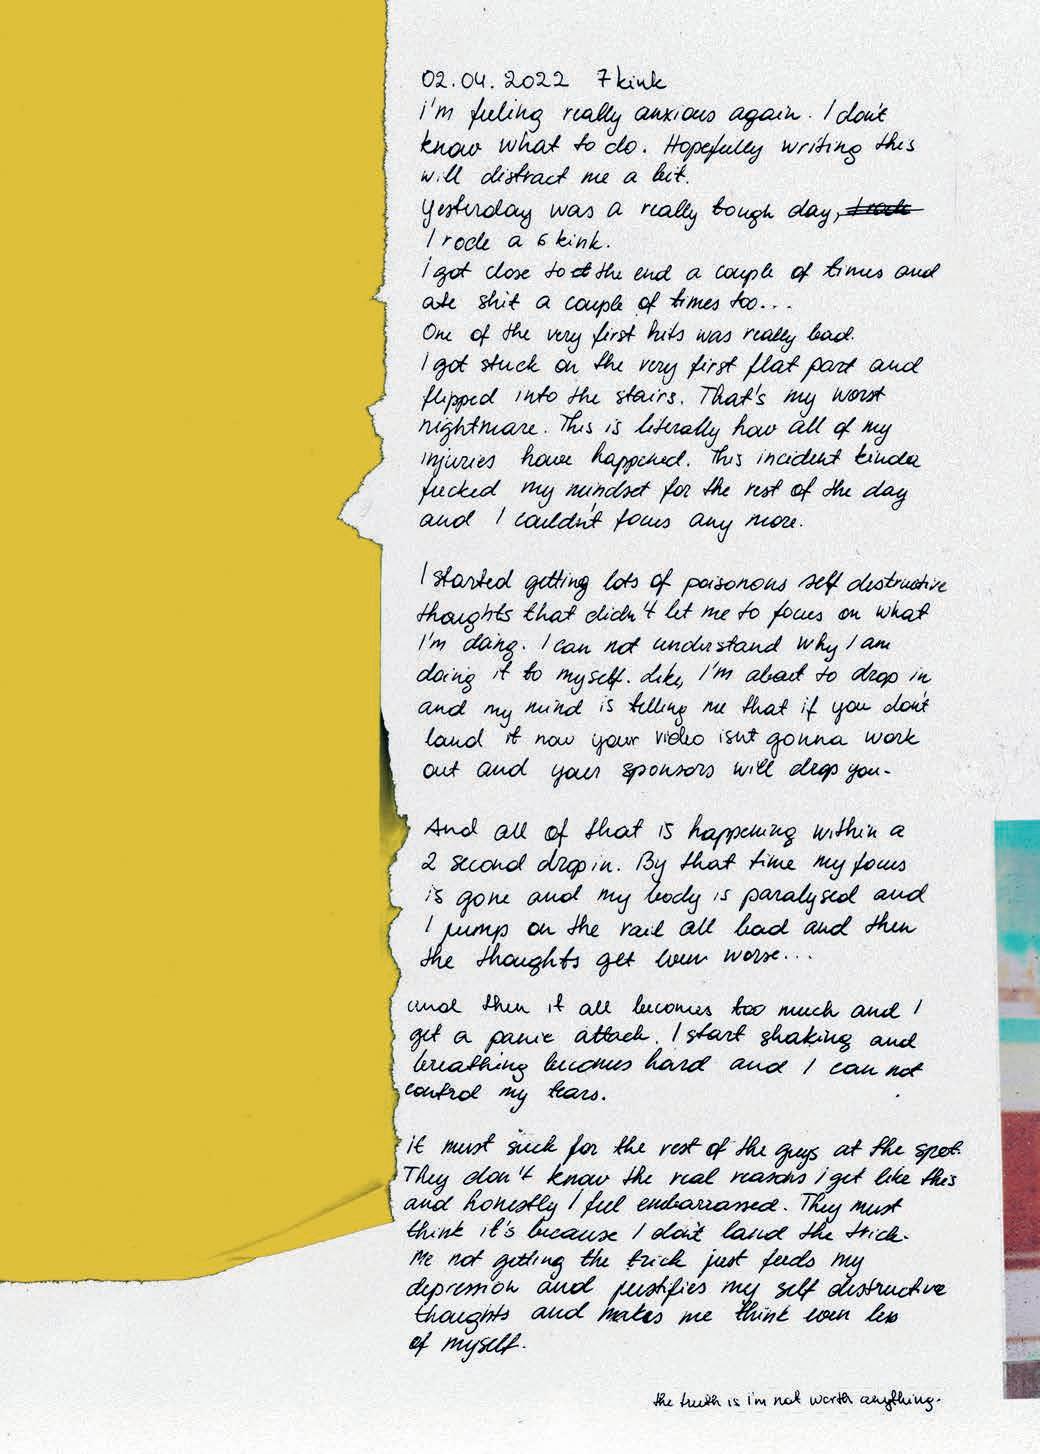 02.04.2022 7 kink
I'm feeling really anxious again. I don't
know what to do. Hopefully writing this
will distract me a bit.
Yesterday was a really tough day,
I rode a 6 kink.
I got close to the end a couple of times and
ate shit a couple of times too...
One of the very first hits was really bad.
I got stuck on the very first flat part and
flipped into the stairs. That's my worst
nightmare. This is literally how all of my
injuries have happened. This incident kinda
fucked my mindset for the rest of the day
and I couldn't focus any more.
I started getting lots of poisonous self destructive
thoughts that didn't let me to focus on what
I'm doing. I can not understand why I am
doing it to myself. Like, I'm about to drop in
and my mind is telling me that if you don't
land it now your video isnt gonna work
out and your sponsors will drop you.
And all of that is happening within a
2 second drop in. By that time my focus
is gone and my body is paralysed and
I jump on the rail all bad and then
the thoughts get even worse...
and then it all becomes too much and I
get a panic attack. I start shaking and
breathing becomes hard and I can not
control my tears.
it must suck for the rest of the guys at the spot.
They don't know the real reasons I get like this
and honestly I feel embarrassed. They must
think it's because I don't land the trick.
Me not getting the trick just feeds my
depression and justifies my self destructive
thoughts and makes me think even less
of myself.
the truth is i'm not worth anything.